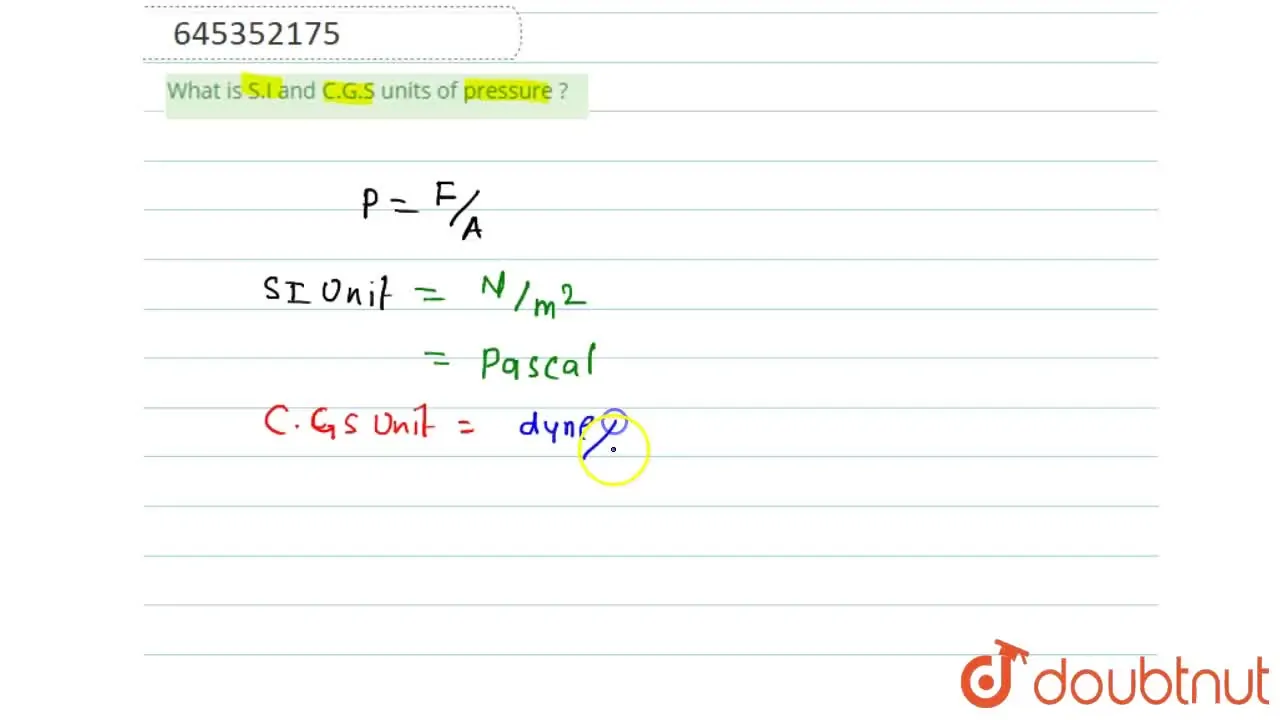 645352175
What is S.I and C.G.S units of pressure ?
P = F/A
SI Unit = N/m2
= Pascal
C.GS Unit = dyne/
doubtnut